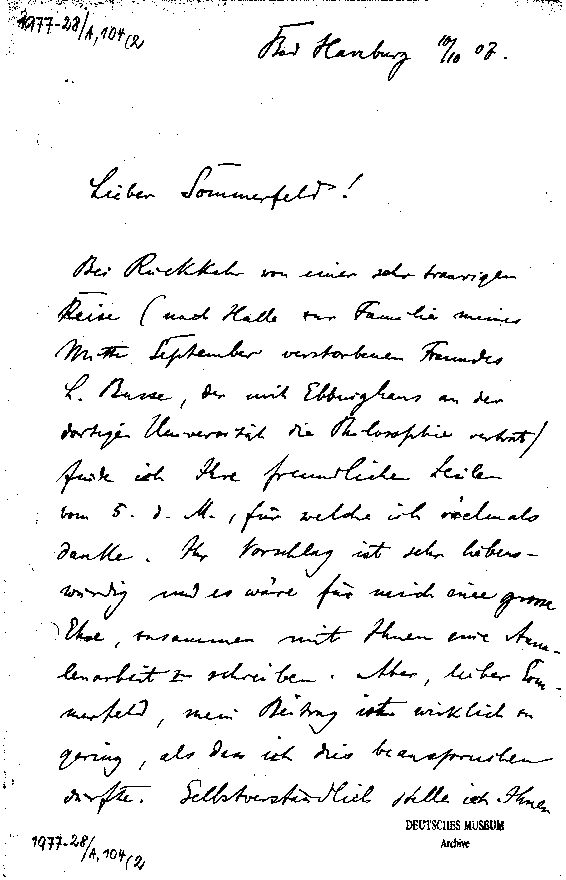 1977-28/A,104(2
Bad Harzburg 10/10 07.
Lieber Sommerfeld!
Bei Rückkehr von einer sehr traurigen
Reise (nach Halle zur Familie meines
Mitte September verstorbenen Freundes
L. Busse, der mit Ebbinghaus an der
dortigen Universität die Philosophie vertrat)
finde ich Ihre freundlichen Zeilen
vom 5. d. M., für welche ich vielmals
danke. Ihr Vorschlag ist sehr liebens-
würdig und es wäre für mich eine grosse
Ehre, zusammen mit Ihnen eine Anna-
lenarbeit zu schreiben. Aber, lieber Som-
merfeld, mein Beitrag ist wirklich zu
gering, als dass ich dies beanspruchen
dürfte. Selbstverständlich stelle ich Ihnen
DEUTSCHES MUSEUM
Archive
1977-28/A,104(2